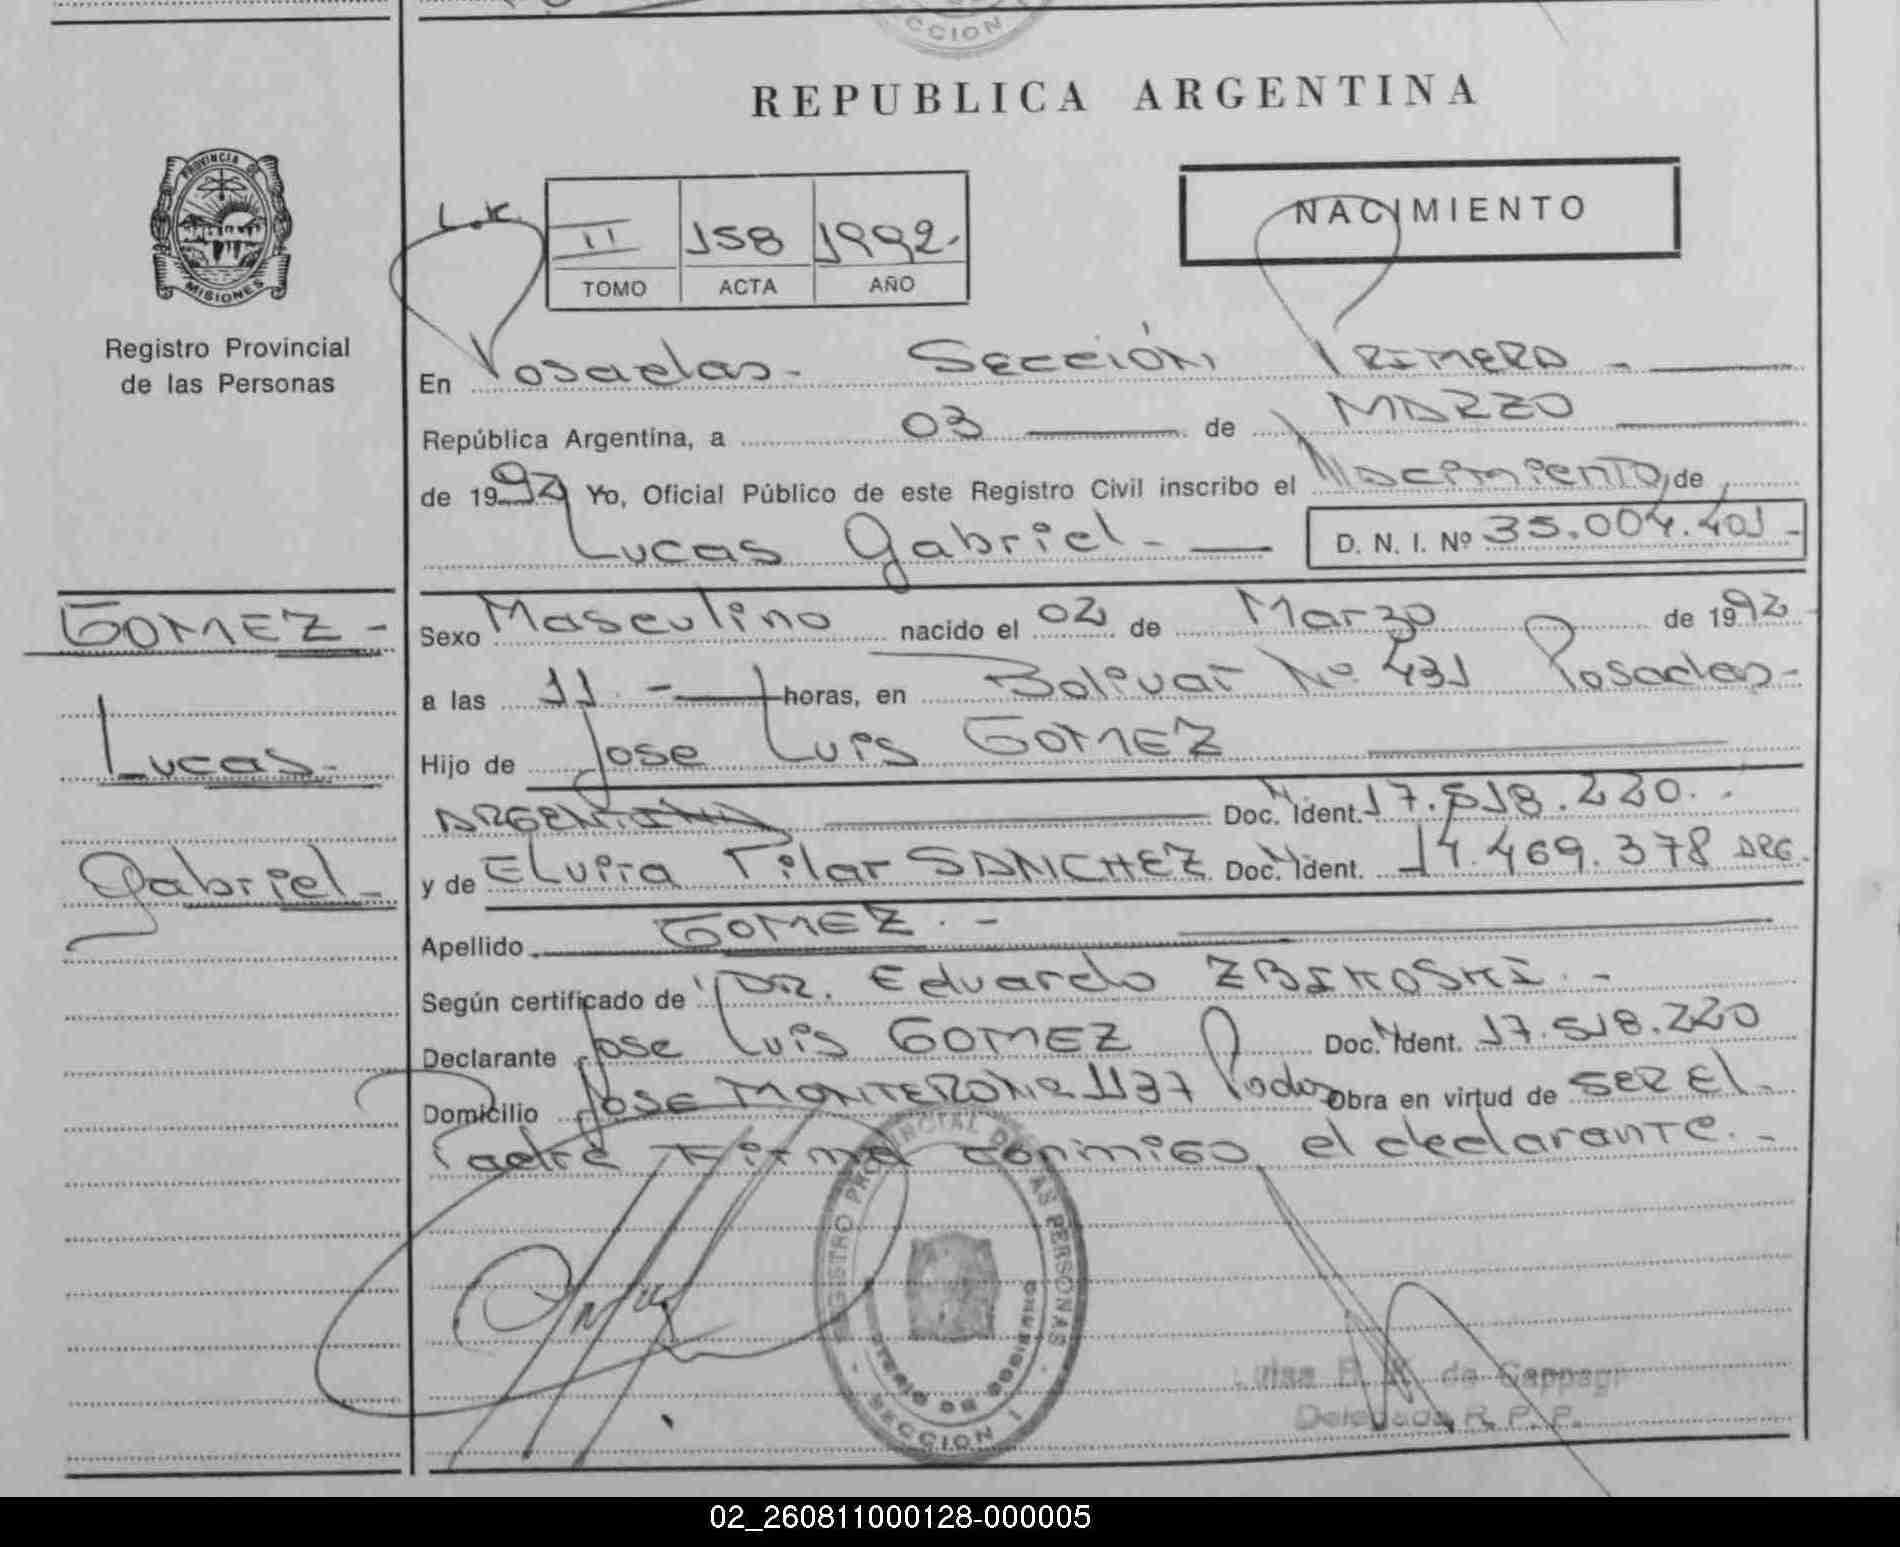 CCION
REPUBLICA ARGENTINA
PROVINCIA DE
MISIONES
Registro Provincial
de las Personas
L.K.
II 158 1992.-
TOMO ACTA AÑO
NACIMIENTO
En Posadas.- SECCIÓN PRIMERA.-
República Argentina, a 03 de MARZO
de 1992 Yo, Oficial Público de este Registro Civil inscribo el Nacimiento de
Lucas Gabriel.- D. N. I. Nº 35.004.401-
GOMEZ-
Sexo Masculino nacido el 02 de Marzo de 1992-
a las 11.- horas, en Bolivar Nº 431 Posadas-
Lucas.-
Hijo de Jose Luis GOMEZ
ARGENTINA Doc. Ident. 17.518.220.-
Gabriel.-
y de Elvira Pilar SANCHEZ Doc. Ident. 14.469.378 ARG.
Apellido GOMEZ.-
Según certificado de DR. Eduardo ZBIKOSKI.-
Declarante Jose Luis GOMEZ Doc. Ident. 17.518.220
Domicilio JOSE 1137 Pdas Obra en virtud de SER El
Padre Firma conmigo el declarante.-
REGISTRO PROVINCIAL DE LAS PERSONAS
MINISTERIO DE GOBIERNO
SECCION I
Luisa de
Delegada R. P. P.
02_260811000128-000005